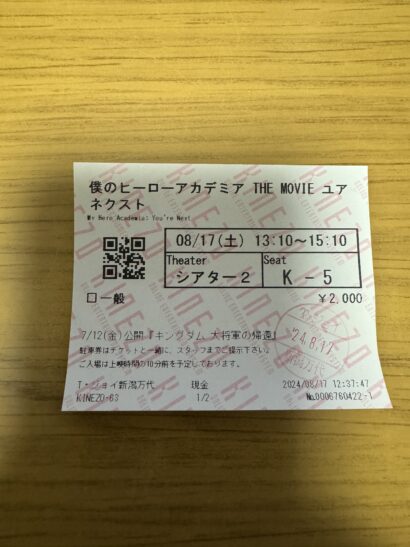 僕のヒーローアカデミア THE MOVIE ユア
ネクスト
My Hero Academia: You're Next
08/17(土) 13:10～15:10
Theater
Seat
シアター2
K - 5
□一般
¥2,000
7/12(金)公開『キングダム 大将軍の帰還』
駐車券はチケットと一緒に、スタッフまでご提示下さい。
ご入場は上映時間の10分前を予定しております。
'24.8.17
T・ジョイ新潟万代
現金
2024/08/17 12:37:47
KINEZO-63
1/2
No.0006760422-1
KINEZO